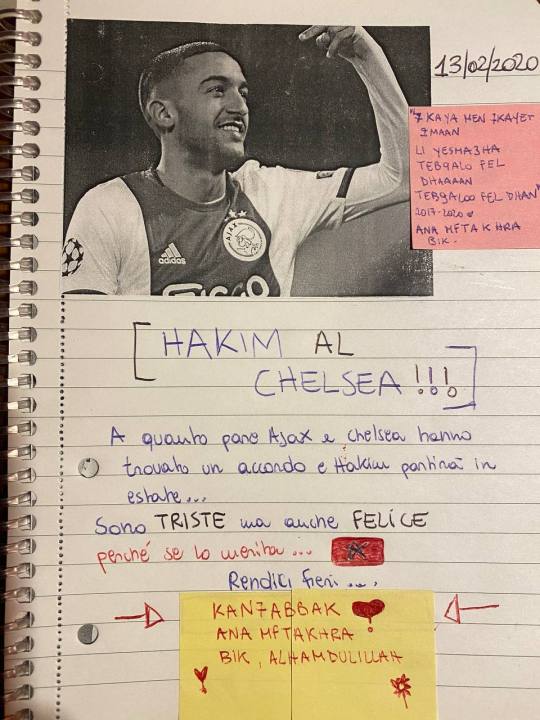 13/02/2020
"7KAYA MEN 7KAYET
IMAAN
LI YESMA3HA
TEB9ALO FEL
DHAAAAN
TEB9ALOO FEL DHAN"
2017-2020
ANA MFTAKHRA
BIK.
AJAX
adidas
ZIGGO
[HAKIM AL
CHELSEA!!!]
A quanto pare Ajax e Chelsea hanno
trovato un accordo e Hakim partirà in
estate...
Sono TRISTE ma anche FELICE
perché se lo merita...
Rendici fieri...
KAN7ABBAK
ANA MFTAKHRA
BIK, ALHAMDULILLAH